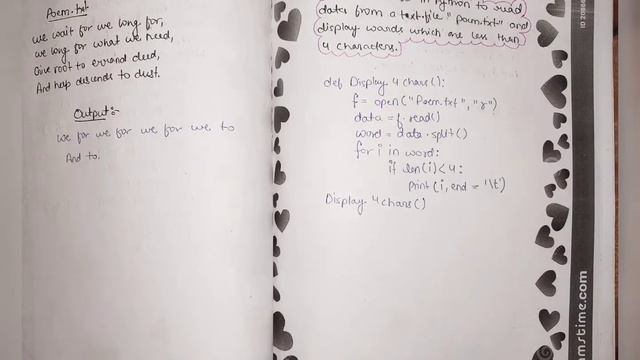 Poem.txt
we wait for we long for,
we long for what we need,
Give root to errand deed,
And help descends to dust.
Output:-
we for we for we for we to
And to.
in Python to read
data from a text file "poem.txt" and
display words which are less than
4 characters.
def Display 4 chars():
f = open("Poem.txt", "r")
data = f.read()
word = data.split()
for i in word:
if len(i)<4:
Print (i, end = '\t')
Display 4 chars()
amstime.com